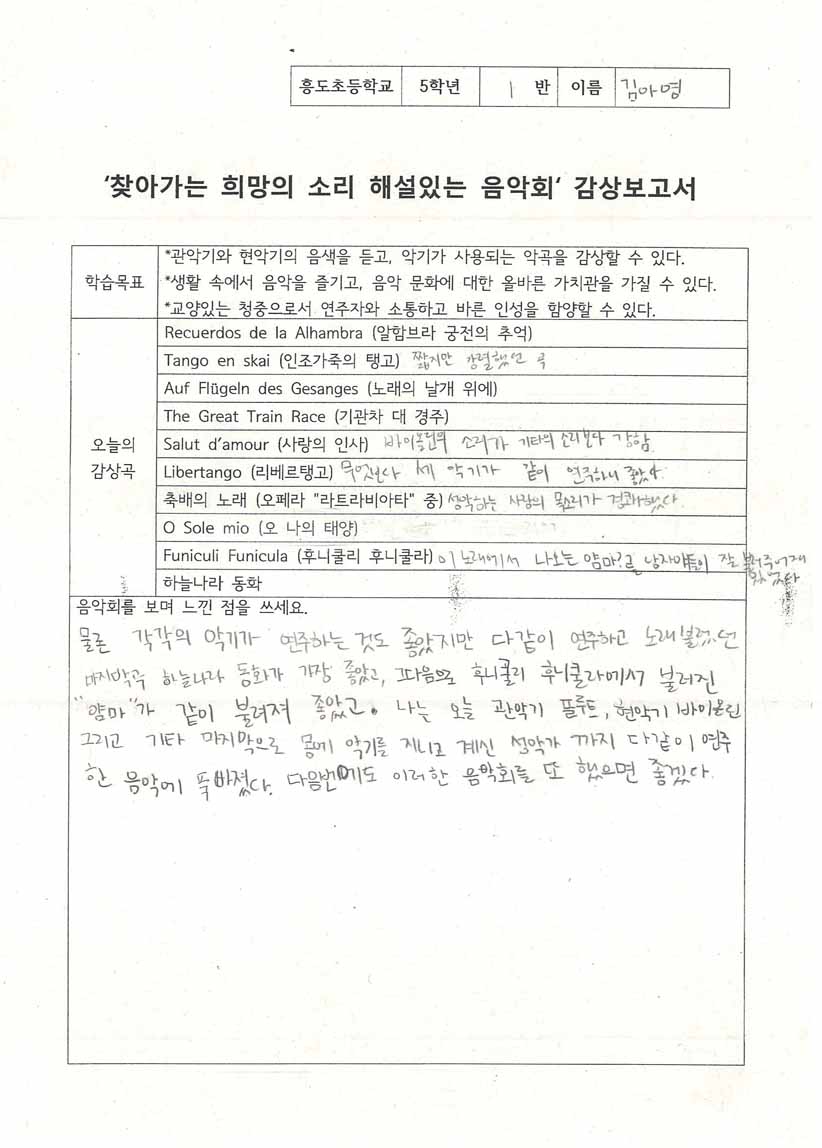 흥도초등학교 5학년 1 반 이름 김아영
'찾아가는 희망의 소리 해설있는 음악회' 감상보고서
학습목표
*관악기와 현악기의 음색을 듣고, 악기가 사용되는 악곡을 감상할 수 있다.
*생활 속에서 음악을 즐기고, 음악 문화에 대한 올바른 가치관을 가질 수 있다.
*교양있는 청중으로서 연주자와 소통하고 바른 인성을 함양할 수 있다.
오늘의
감상곡
Recuerdos de la Alhambra (알함브라 궁전의 추억)
Tango en skai (인조가죽의 탱고) 짧지만 강렬했던 곡
Auf Flügeln des Gesanges (노래의 날개 위에)
The Great Train Race (기관차 대 경주)
Salut d'amour (사랑의 인사) 바이올린의 소리가 기타의 소리보다 강함
Libertango (리베르탱고) 무엇보다 세 악기가 같이 연주하니 좋았다.
축배의 노래 (오페라 "라트라비아타" 중) 성악하는 사람의 목소리가 경쾌했다
O Sole mio (오 나의 태양)
Funiculi Funicula (후니쿨리 후니쿨라) 이 노래에서 나오는 얌마?를 남자애들이 잘 불러주어 재
있었다
하늘나라 동화
음악회를 보며 느낀 점을 쓰세요.
물론 각각의 악기가 연주하는 것도 좋았지만 다같이 연주하고 노래불렀던
마지막곡 하늘나라 동화가 가장 좋았고, 그다음으로 후니쿨리 후니쿨라에서 불러진
"얌마"가 같이 불려져 좋았고. 나는 오늘 관악기 플루트, 현악기 바이올린
그리고 기타 마지막으로 몸에 악기를 지니고 계신 성악가 까지 다같이 연주
한 음악에 푹 빠졌다. 다음번에도 이러한 음악회를 또 했으면 좋겠다.